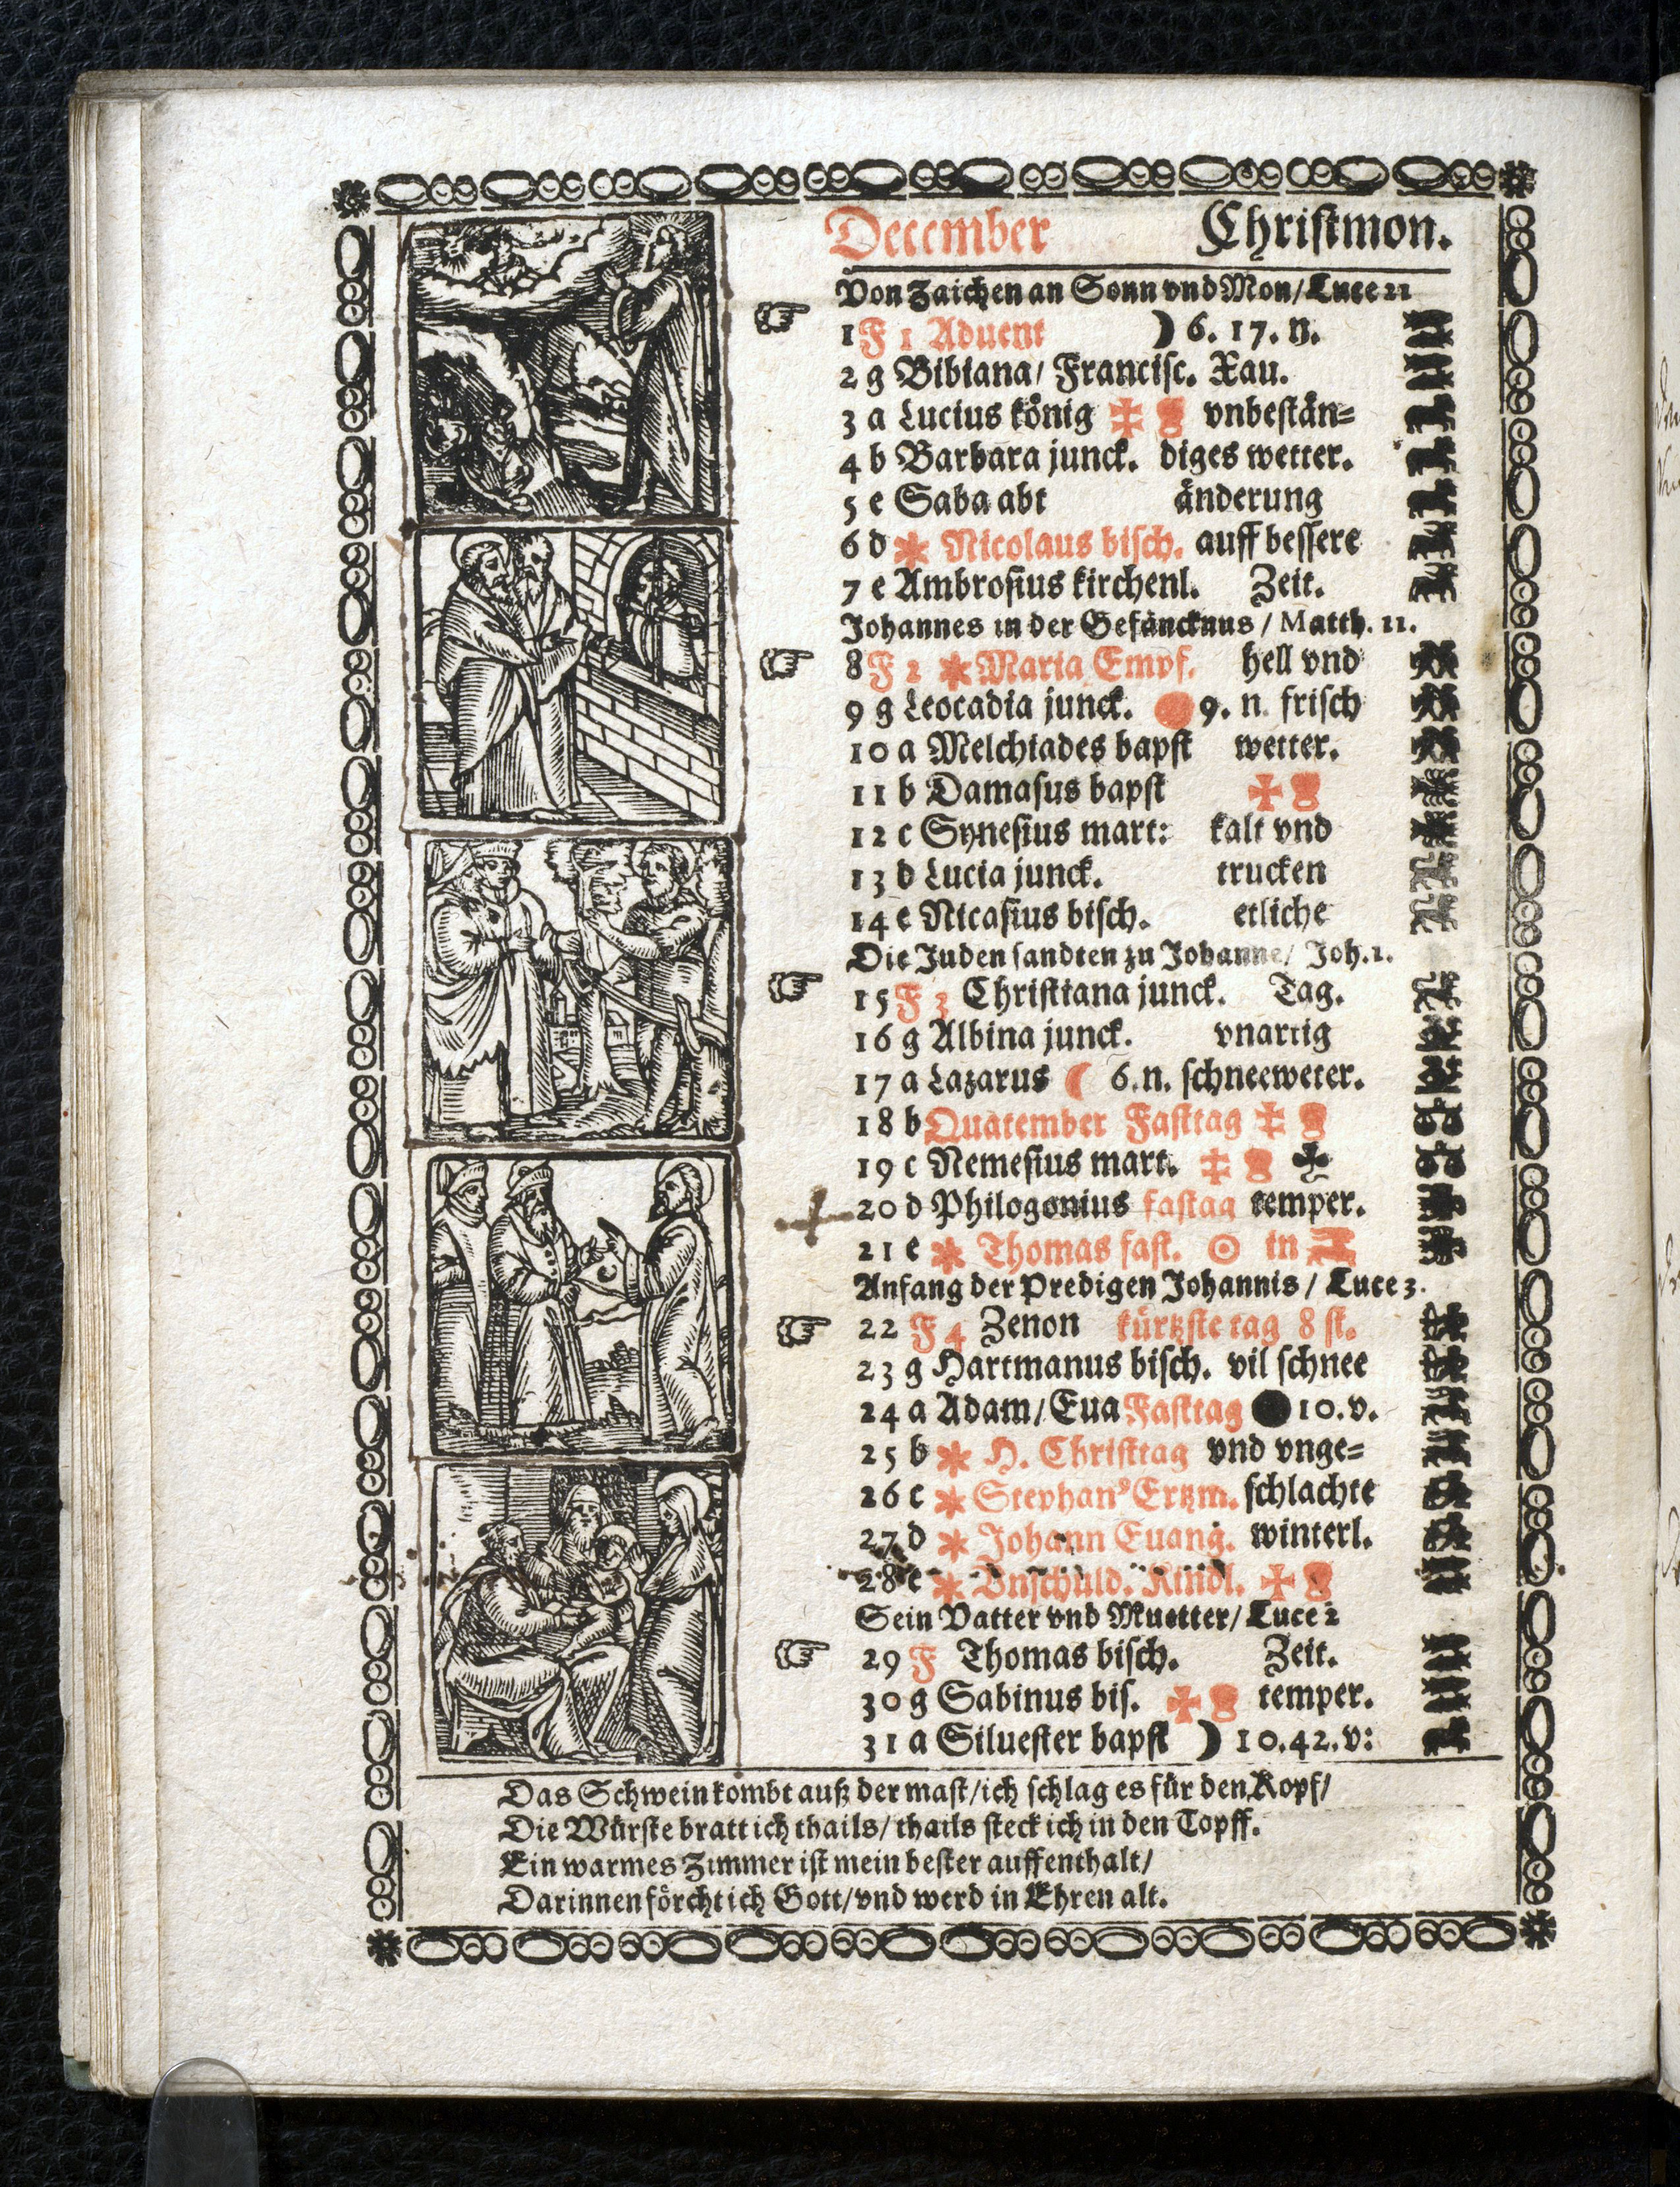 December Christmon.
Von Zaichen an Sonn vnd Mon/ Luce 21
1 F 1 Aduent ) 6. 17. n.
2 g Bibiana/ Francisc. Xau.
3 a Lucius könig vnbestän=
4 b Barbara junck. diges wetter.
5 c Saba abt änderung
6 d * Nicolaus bisch. auff bessere
7 e Ambrosius kirchenl. Zeit.
Johannes in der Gefäncknus / Matth. 11.
8 F 2 * Maria Empf. hell vnd
9 g Leocadia junck. 9. n. frisch
10 a Melchiades bapst wetter.
11 b Damasus bapst
12 c Synesius mart: kalt vnd
13 d Lucia junck. trucken
14 e Nicasius bisch. etliche
Die Juden sandten zu Johanne/ Joh. 1.
15 F 3 Christiana junck. Tag.
16 g Albina junck. vnartig
17 a Lazarus ( 6. n. schneeweter.
18 b Quatember Fasttag
19 c Nemesius mart.
20 d Philogonius fastag temper.
21 e * Thomas fast. ☉ in
Anfang der Predigen Johannis / Luce 3.
22 F 4 Zenon kürtzste tag 8 st.
23 g Hartmanus bisch. vil schnee
24 a Adam/ Eua Fasttag 10. v.
25 b * H. Christtag vnd vnge=
26 c * Stephan⁹ Ertzm. schlachte
27 d * Johann Euang. winterl.
28 e * Vnschuld. Kindl.
Sein Vatter vnd Muetter/ Luce 2
29 F Thomas bisch. Zeit.
30 g Sabinus bis. temper.
31 a Siluester bapst ) 10. 42. v:
Das Schwein kombt auß der mast/ ich schlag es für den Kopf/
Die Würste bratt ich thails/ thails steck ich in den Topff.
Ein warmes Zimmer ist mein bester auffenthalt/
Darinnen förcht ich Gott/ vnd werd in Ehren alt.